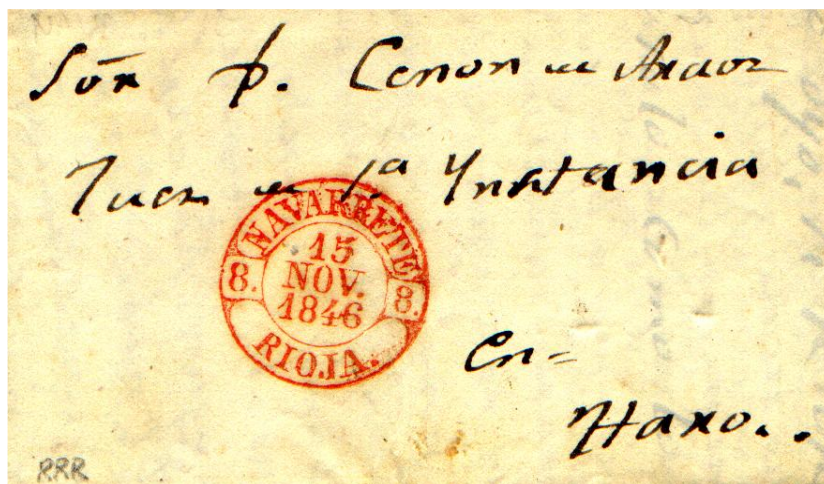 Sōr D. Cenon de Araoz
Juez de 1ª Ynstancia
NAVARRETE
8. 15 8.
NOV.
1846
RIOJA.
en=
Haro..
RRR